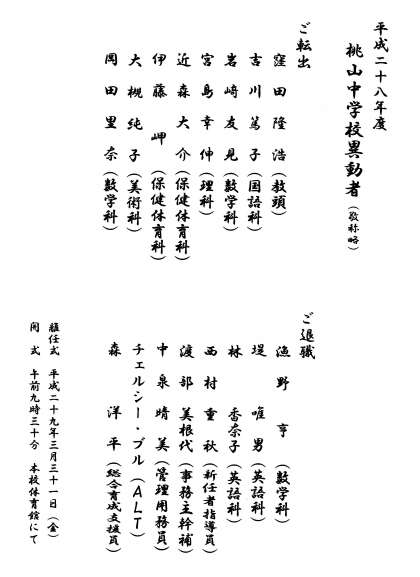 平成二十八年度
桃山中学校異動者（敬称略）
ご転出
窪田隆浩（教頭）
吉川篤子（国語科）
岩﨑友見（数学科）
宮島幸伸（理科）
近森大介（保健体育科）
伊藤岬（保健体育科）
大槻純子（美術科）
岡田里奈（数学科）
ご退職
漁野亨（数学科）
堤唯男（英語科）
林香奈子（英語科）
西村重秋（新任者指導員）
渡部美根代（事務主幹補）
中泉晴美（管理用務員）
チェルシー・ブル（ALT）
森洋平（総合育成支援員）
離任式 平成二十九年三月三十一日（金）
開式 午前九時三十分 本校体育館にて